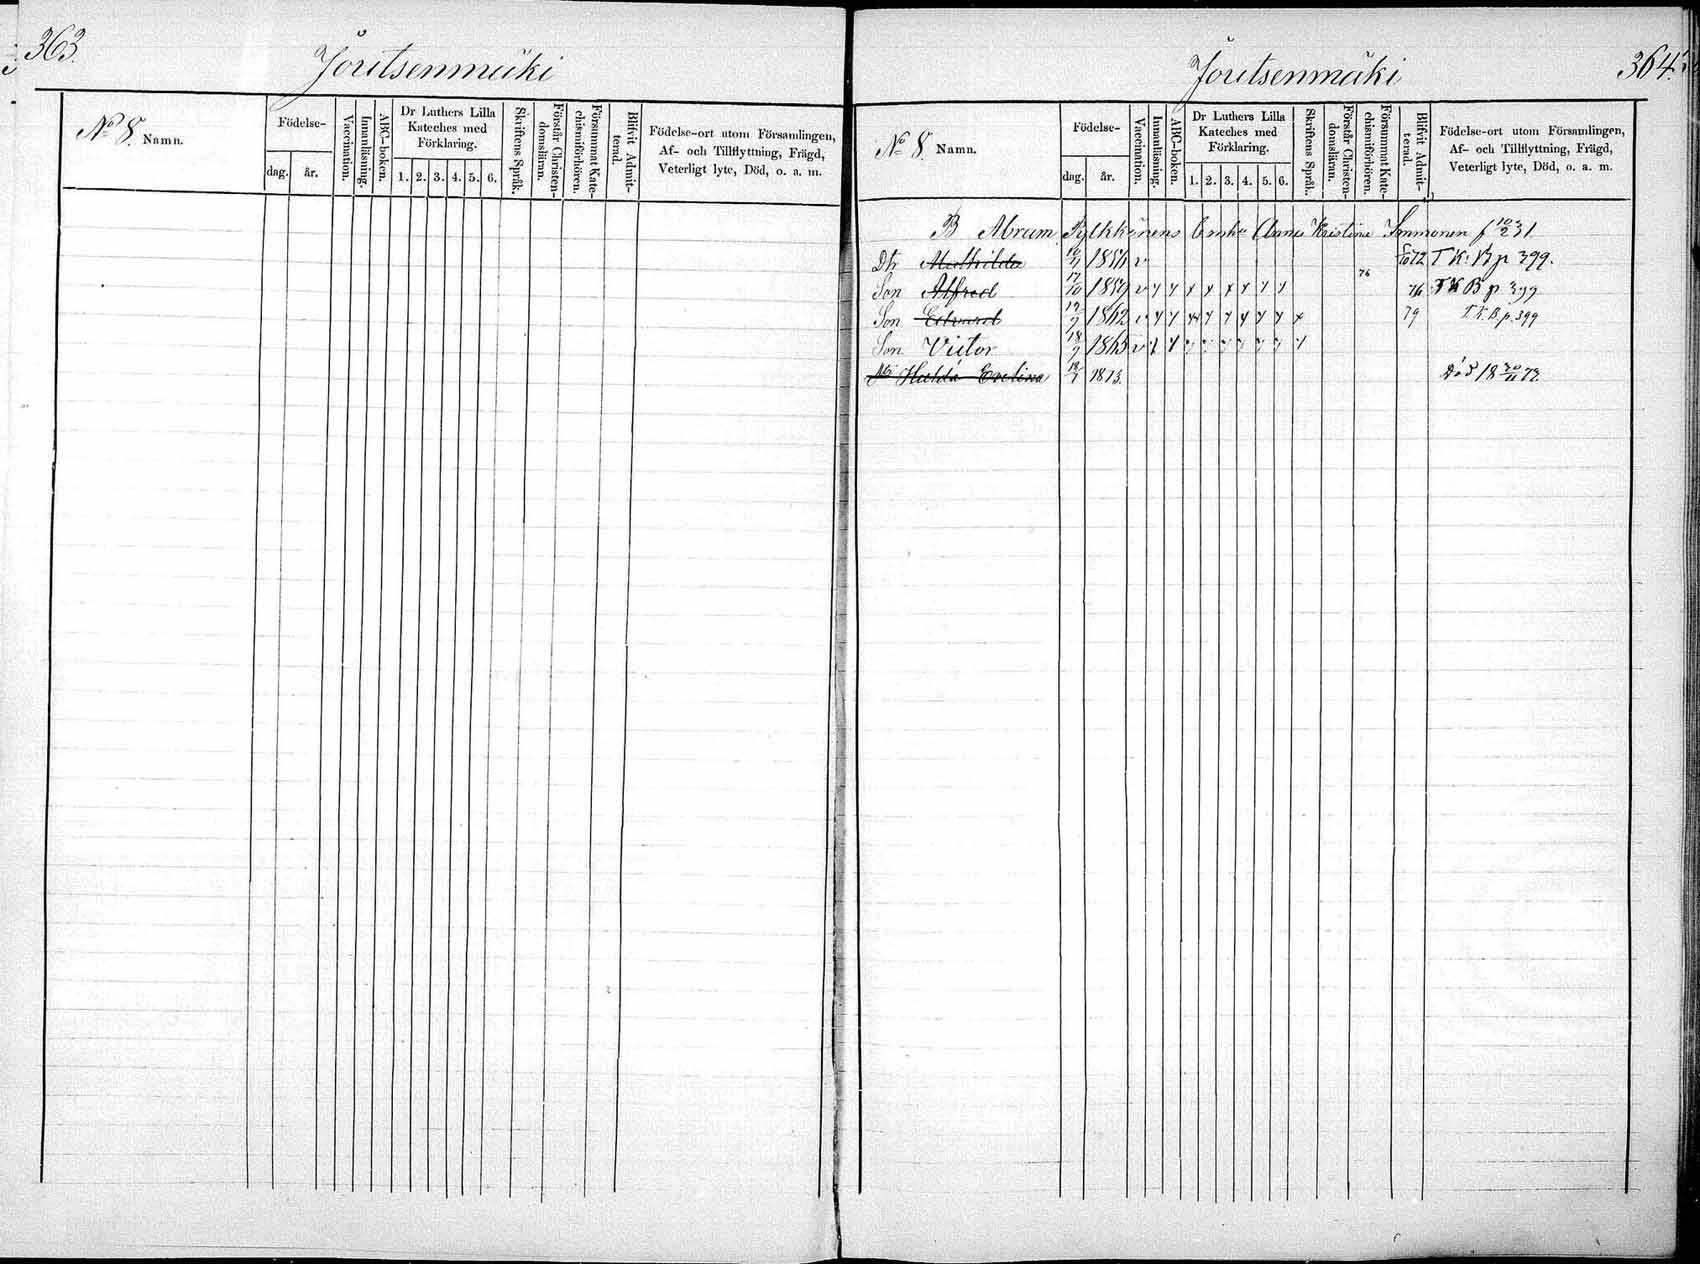 363.
Joutsenmäki
No 8. Namn.
Födelse-
dag. år.
Vaccination.
Innanläsning.
ABC-boken.
Dr Luthers Lilla
Kateches med
Förklaring.
1. 2. 3. 4. 5. 6.
Skriftens Språk.
Förstår Christen-
domslärann.
Försummat Kate-
chismiförhören.
Blifvit Admit-
terad.
Födelse-ort utom Församlingen,
Af- och Tillflyttning, Frägd,
Veterligt lyte, Död, o. a. m.
Joutsenmäki
364.
No 8. Namn.
Födelse-
dag. år.
Vaccination.
Innanläsning.
ABC-boken.
Dr Luthers Lilla
Kateches med
Förklaring.
1. 2. 3. 4. 5. 6.
Skriftens Språk.
Förstår Christen-
domslärann.
Försummat Kate-
chismiförhören.
Blifvit Admit-
terad.
Födelse-ort utom Församlingen,
Af- och Tillflyttning, Frägd,
Veterligt lyte, Död, o. a. m.
B Abram Pylkkänens Enka Anna Kristina Immonen f 10/2 31
Dtr Mathilda 1856 v 72 T.K.B p 399.
Son Alfred 17/10 1859 v 76 76 T K B p 399
Son Edvard 19/9 1862 v 79 T.K.B.p.399
Son Victor 18/9 1865 v
Dtr Hulda Evelina 18/7 1873. Död 18 20/11 73